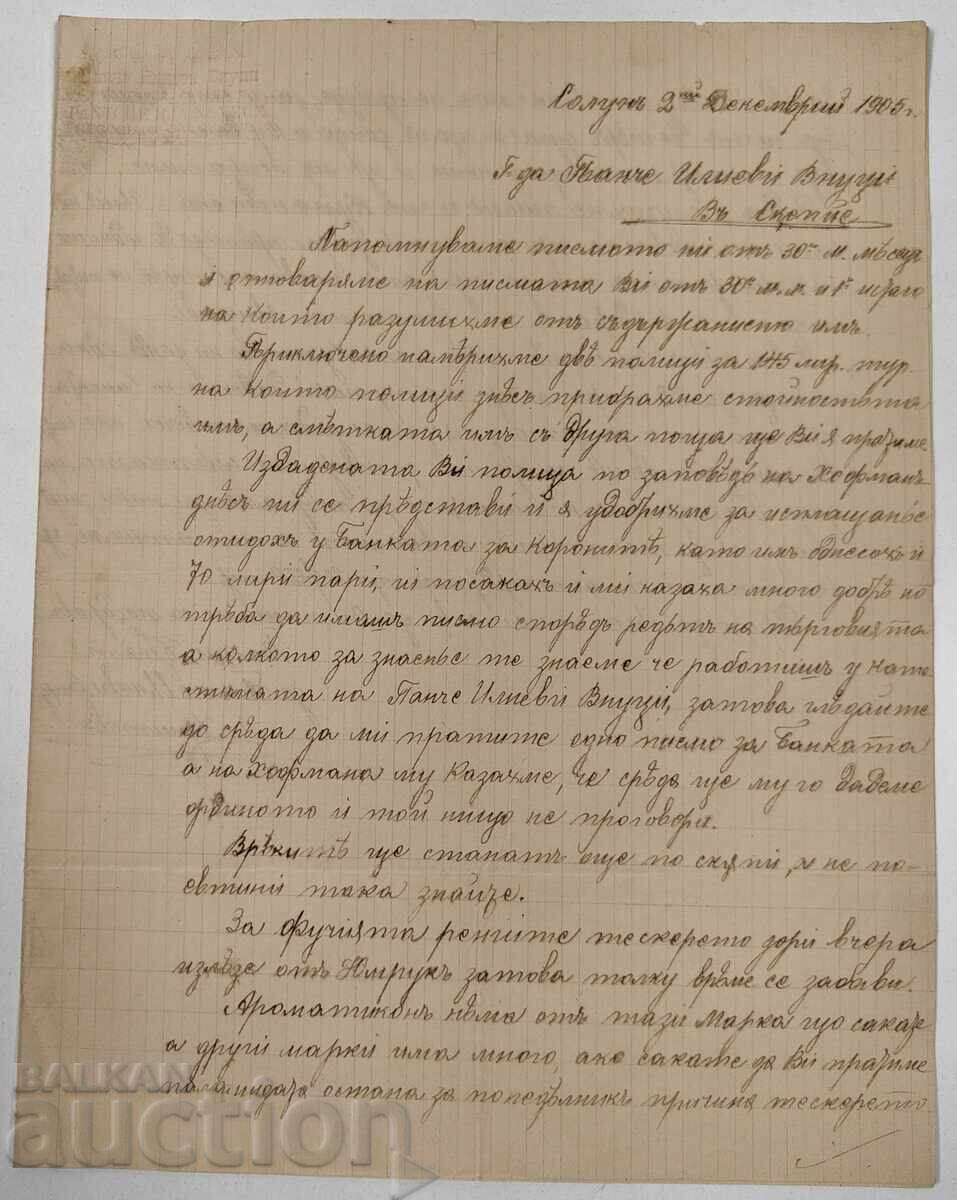 Солунъ 2ий Декемврий 1905 г.
Г-да Панче Илиеви Внуци
Въ Скопие
Напомнуваме писмото ни отъ 30о м. мѣсецъ
и отговаряме на писмата Ви отъ 30о м.м. и 1о
на които разумихме отъ съдържанието имъ.
Приключено намѣрихме двѣ полици за 145 лир. тур.
на които полици днесъ прибрахме стойностьта
имъ, а смѣтката имъ съ друга поща ще Ви я пратиме
Издадената Ви полица по заповѣдъ на Хофманъ
днесъ ни се прѣдстави и я удобрихме за исплащанье
отидохъ у Банката за коронитѣ, като имъ и
70 лири пари, и посакахъ и ми казаха много добрѣ но
трѣба да имашъ писмо спорѣдъ редътъ на търговията
а колкото за знаенье те знаеме че работишъ у
на Панче Илиеви Внуци, затова глѣдайте
до срѣда да ми пратите едно писмо за Банката
а на Хофмана му казахме, че срѣда ще му го дадеме
и той нищо не проговори.
Врѣкитѣ ще станатъ още по скяпи, и не по-
евтини така знайте.
За фучията ренгите тескерето дори вчера
излѣзе отъ Юмрукъ затова толку врѣме се забави.
Ароматиконъ нѣма отъ тази Марка що сакате
а други марки има много, ако сакате да Ви пратиме
паламидата остана за понедѣлникъ причина тескерето
BALKAN
auction